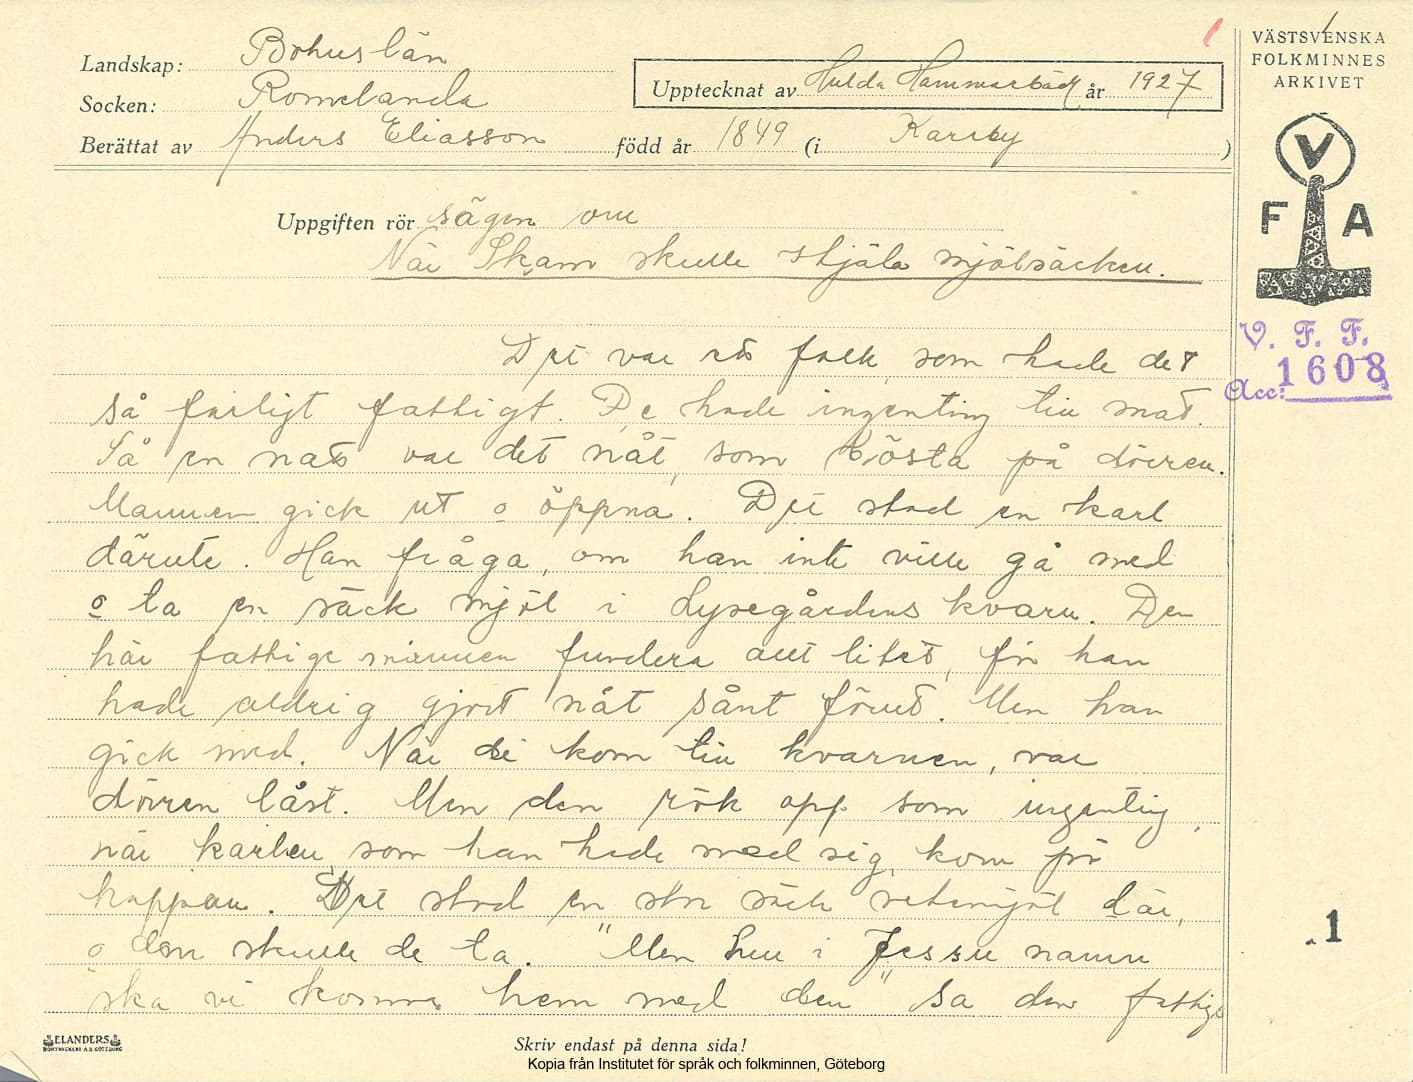 Landskap: Bohuslän
Socken: Romelanda
Upptecknat av Hulda Hammarbäck år 1927
Berättat av Anders Eliasson född år 1849 (i Kareby)
VÄSTSVENSKA
FOLKMINNES
ARKIVET
V
F A
Uppgiften rör sägen om
När Skam skulle stjäla mjölsäcken.
V. F. F.
Acc: 1608
Det var ett folk, som hade det
så farligt fattigt. De hade ingenting till mat.
Så en natt var det nåt, som bösta på dörren.
Mannen gick ut o öppna. Det stod en karl
därute. Han fråga, om han inte ville gå med
o ta en säck mjöl i Lysegårdens kvarn. Den
här fattige mannen fundera allt litet, för han
hade aldrig gjort nåt sånt förut. Men han
gick med. När de kom till kvarnen, var
dörren låst. Men den rök opp som ingenting,
när karlen, som han hade med sig, kom för
knappen. Det stod en stor säck vetemjöl där,
o den skulle de ta. "Men hur i Jessu namn
ska vi komma hem med den" sa den fattige
1
ELANDERS
BOKTRYCKERI A.B. GÖTEBORG
Skriv endast på denna sida!
Kopia från Institutet för språk och folkminnen, Göteborg